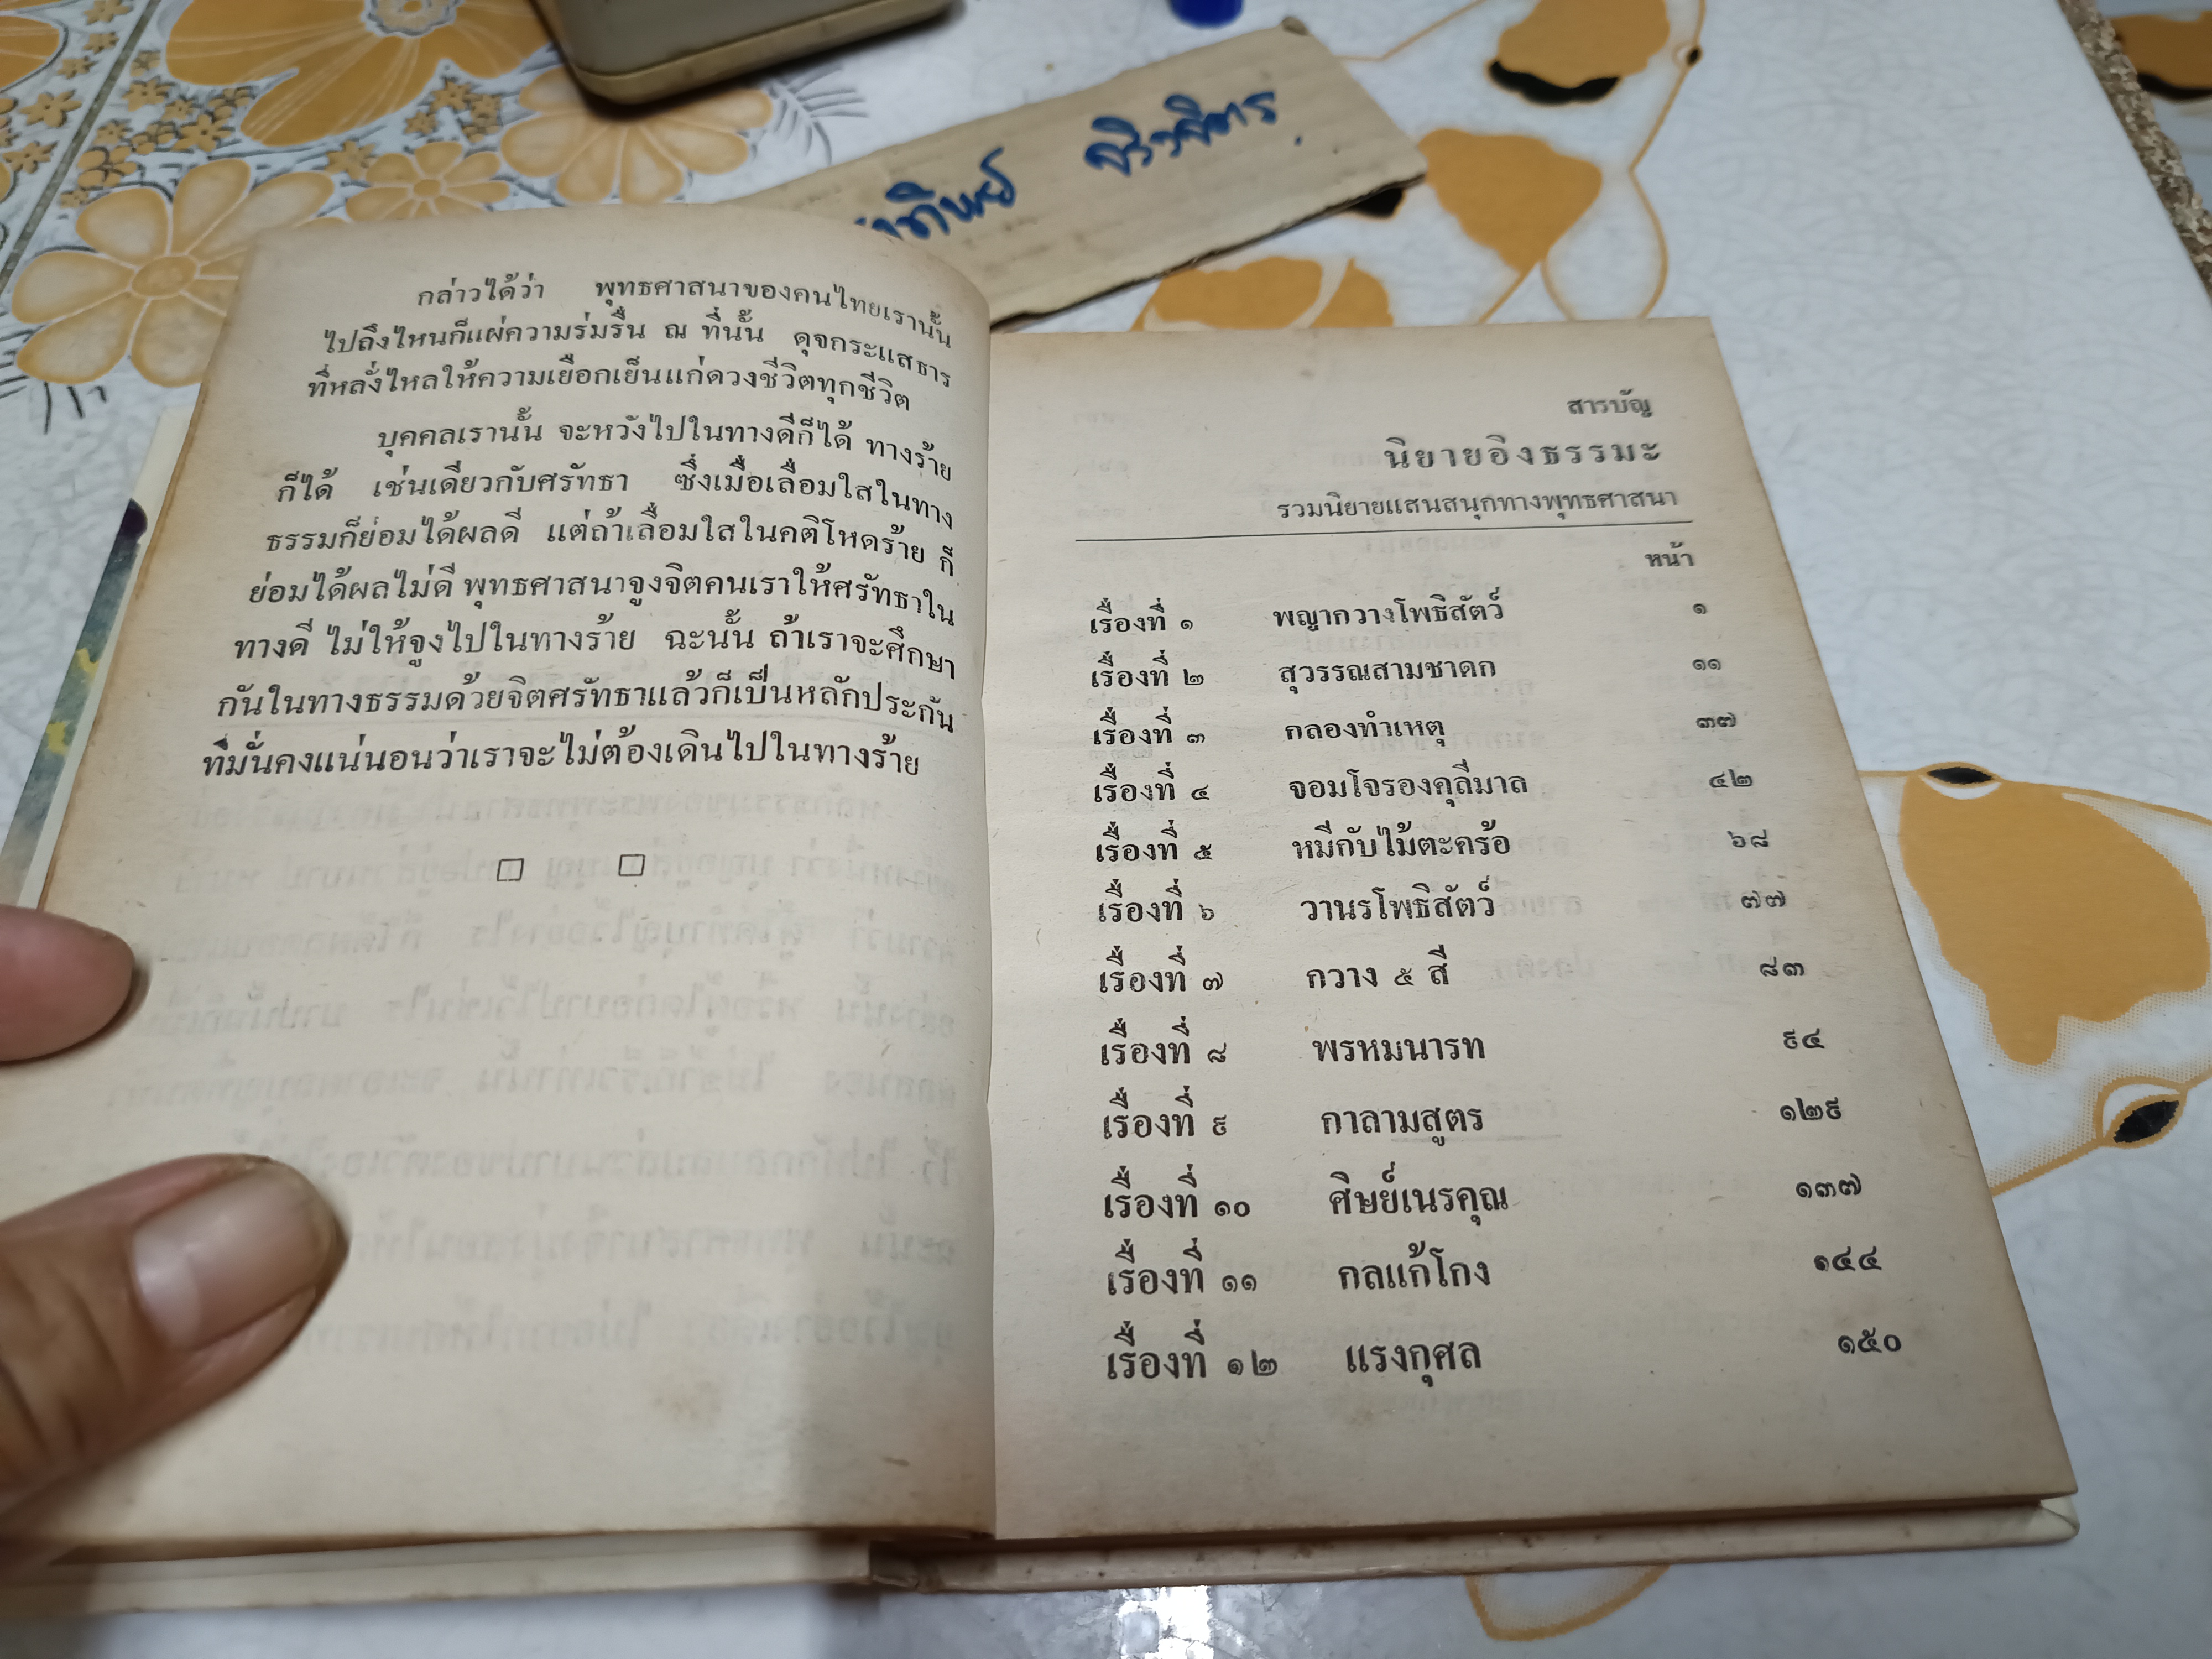 กล่าวได้ว่า พุทธศาสนาของคนไทยเรานั้น
ไปถึงไหนก็แผ่ความร่มรื่น ณ ที่นั้น ดุจกระแสธาร
ที่หลั่งไหลให้ความเยือกเย็นแก่ดวงชีวิตทุกชีวิต
บุคคลเรานั้น จะหวังไปในทางดีก็ได้ ทางร้าย
ก็ได้ เช่นเดียวกับศรัทธา ซึ่งเมื่อเลื่อมใสในทาง
ธรรมก็ย่อมได้ผลดี แต่ถ้าเลื่อมใสในคติโหดร้าย ก็
ย่อมได้ผลไม่ดี พุทธศาสนาจูงจิตคนเราให้ศรัทธาใน
ทางดี ไม่ให้จูงไปในทางร้าย ฉะนั้น ถ้าเราจะศึกษา
กันในทางธรรมด้วยจิตศรัทธาแล้วก็เป็นหลักประกัน
ที่มั่นคงแน่นอนว่าเราจะไม่ต้องเดินไปในทางร้าย
สารบัญ
นิยายอิงธรรมะ
รวมนิยายแสนสนุกทางพุทธศาสนา
หน้า
เรื่องที่ ๑ พญากวางโพธิสัตว์ ๑
เรื่องที่ ๒ สุวรรณสามชาดก ๑๑
เรื่องที่ ๓ กลองทำเหตุ ๓๗
เรื่องที่ ๔ จอมโจรองคุลีมาล ๔๒
เรื่องที่ ๕ หมีกับไม้ตะคร้อ ๖๘
เรื่องที่ ๖ วานรโพธิสัตว์ ๗๗
เรื่องที่ ๗ กวาง ๕ สี ๘๓
เรื่องที่ ๘ พรหมนารท ๙๔
เรื่องที่ ๙ กาลามสูตร ๑๒๙
เรื่องที่ ๑๐ ศิษย์เนรคุณ ๑๓๗
เรื่องที่ ๑๑ กลแก้โกง ๑๔๔
เรื่องที่ ๑๒ แรงกุศล ๑๕๐